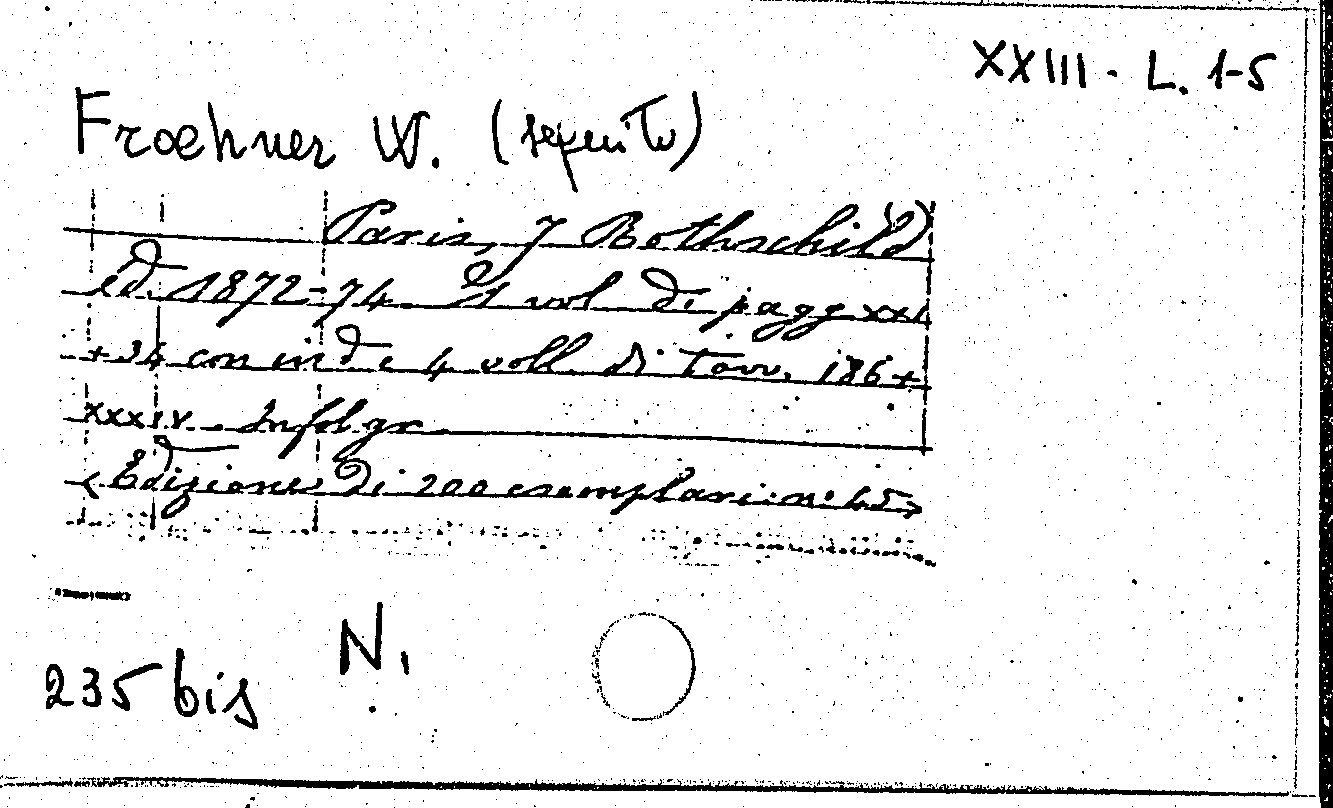 XXIII - L. 1-5
Froehner W. (seguito)
Paris, J Rothschild
ed. 1872-74. 1 vol di pagg XXX
+34 con ind e 4 voll. di tavv. 186+
XXXIV. In fol gr.
(Edizione di 200 esemplari: n° 45)
N.
235 bis